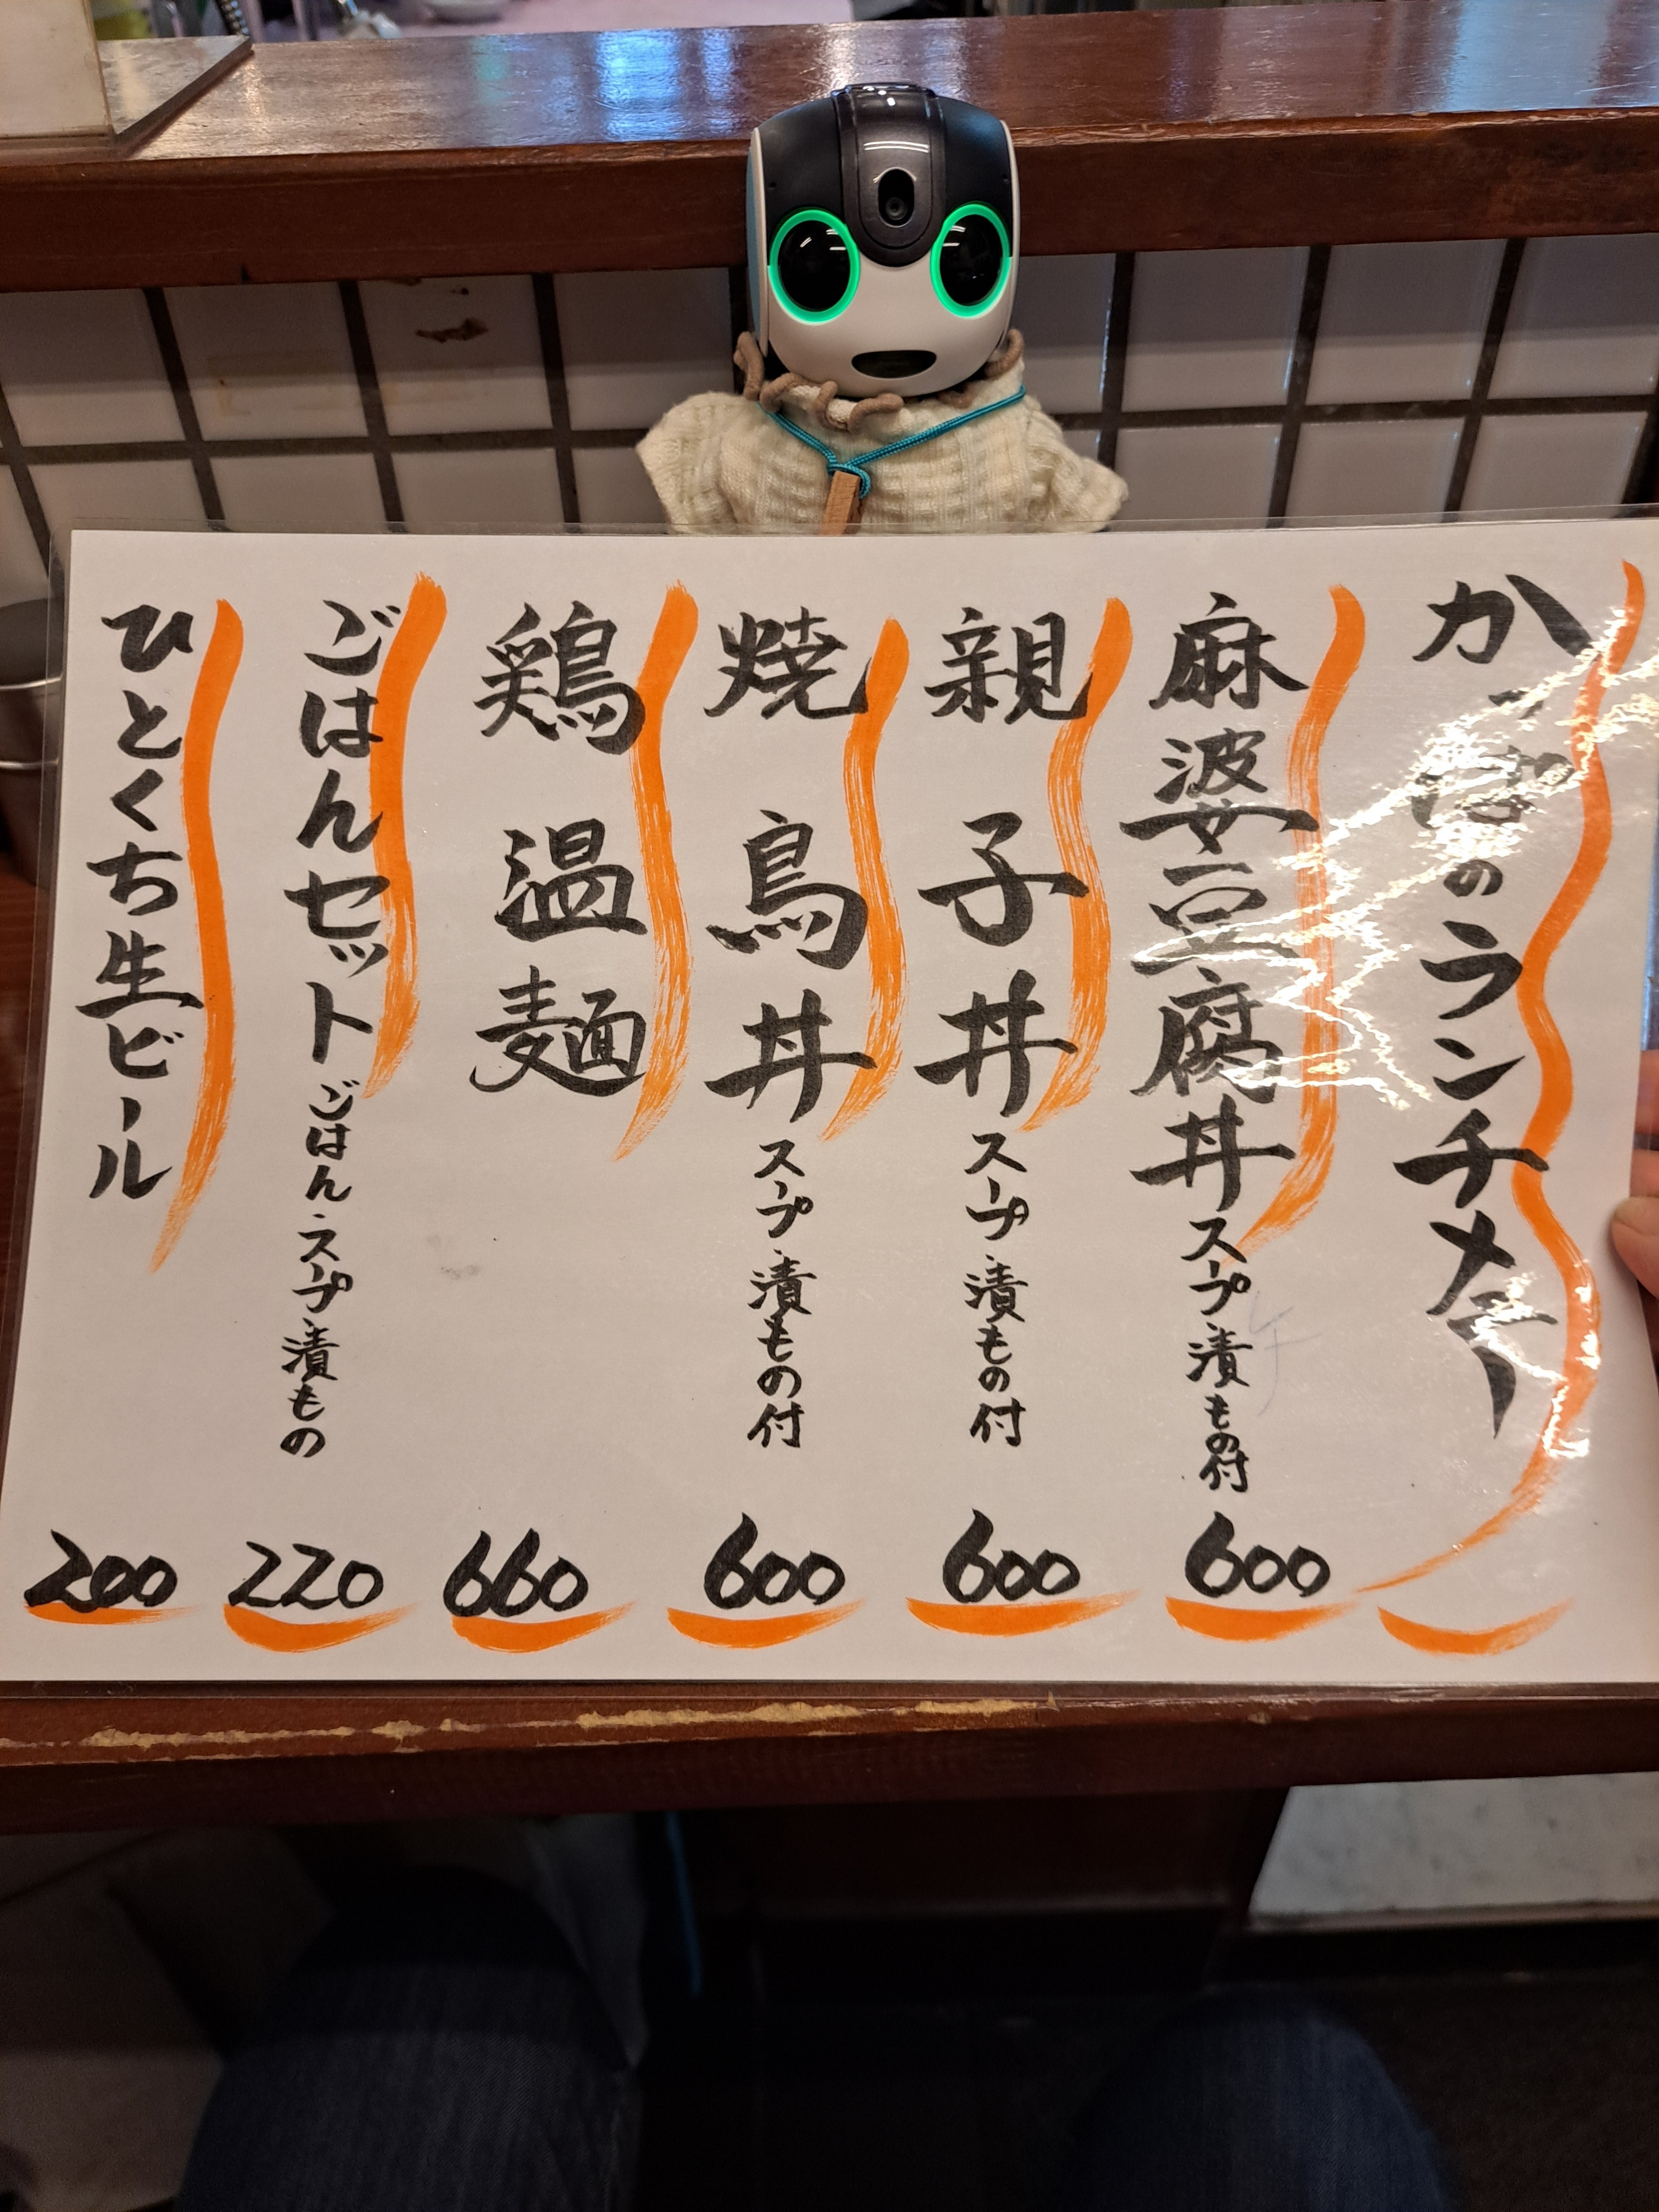 かっぱのランチメニュー
麻婆豆腐丼 スープ 漬もの付 600
親子丼 スープ 漬もの付 600
焼鳥丼 スープ 漬もの付 600
鶏温麺 660
ごはんセット ごはん・スープ・漬もの 220
ひとくち生ビール 200